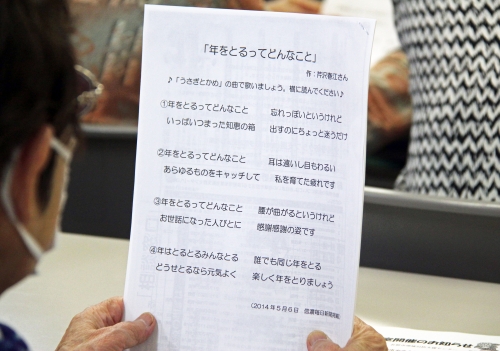 「年をとるってどんなこと」
作：芹沢春江さん
♪「うさぎとかめ」の曲で歌いましょう。横に読んでください♪
①年をとるってどんなこと　忘れっぽいというけれど
いっぱいつまった知恵の箱　出すのにちょっと迷うだけ
②年をとるってどんなこと　耳は遠いし目もわるい
あらゆるものをキャッチして　私を育てた疲れです
③年をとるってどんなこと　腰が曲がるというけれど
お世話になった人びとに　感謝感謝の姿です
④年はとるとるみんなとる　誰でも同じ年をとる
どうせとるなら元気よく　楽しく年をとりましょう
（2014年5月6日　信濃毎日新聞掲載）
開催のお知らせ